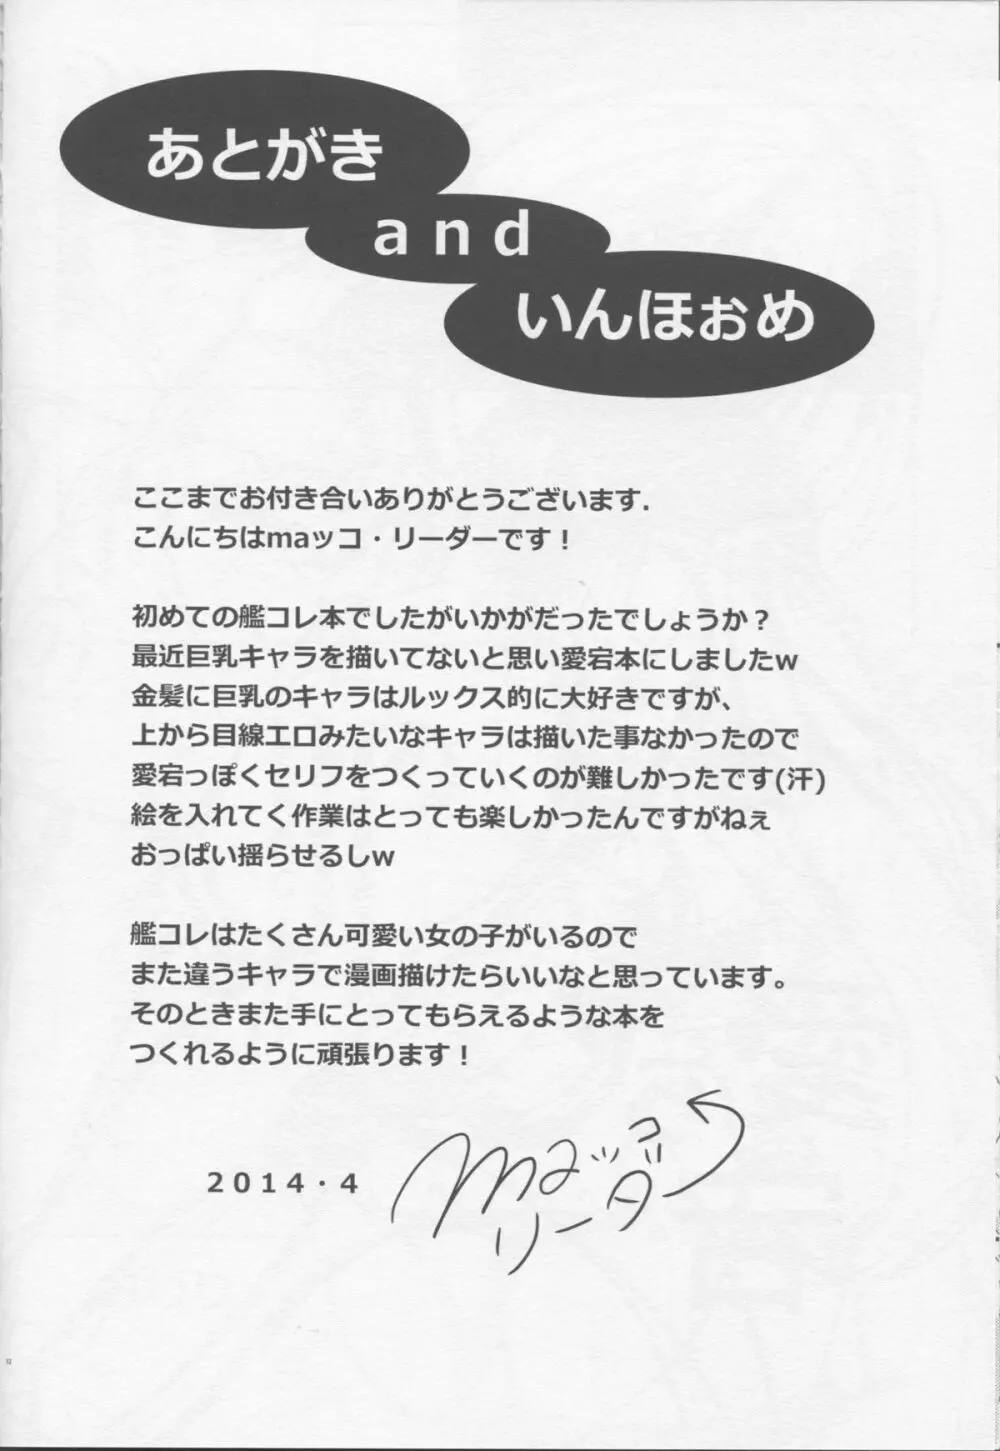 あとがき
and
いんほぉめ
ここまでお付き合いありがとうございます.
こんにちはmaッコ・リーダーです！
初めての艦コレ本でしたがいかがだったでしょうか？
最近巨乳キャラを描いてないと思い愛宕本にしましたw
金髪に巨乳のキャラはルックス的に大好きですが、
上から目線エロみたいなキャラは描いた事なかったので
愛宕っぽくセリフをつくっていくのが難しかったです(汗)
絵を入れてく作業はとっても楽しかったんですがねぇ
おっぱい揺らせるしw
艦コレはたくさん可愛い女の子がいるので
また違うキャラで漫画描けたらいいなと思っています。
そのときまた手にとってもらえるような本を
つくれるように頑張ります！
２０１４・４
maッコ
リーダー